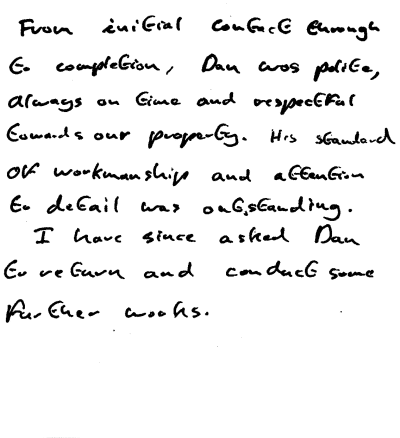 From initial contact through
to completion, Dan was polite,
always on time and respectful
towards our property. His standard
of workmanship and attention
to detail was outstanding.
I have since asked Dan
to return and conduct some
further works.